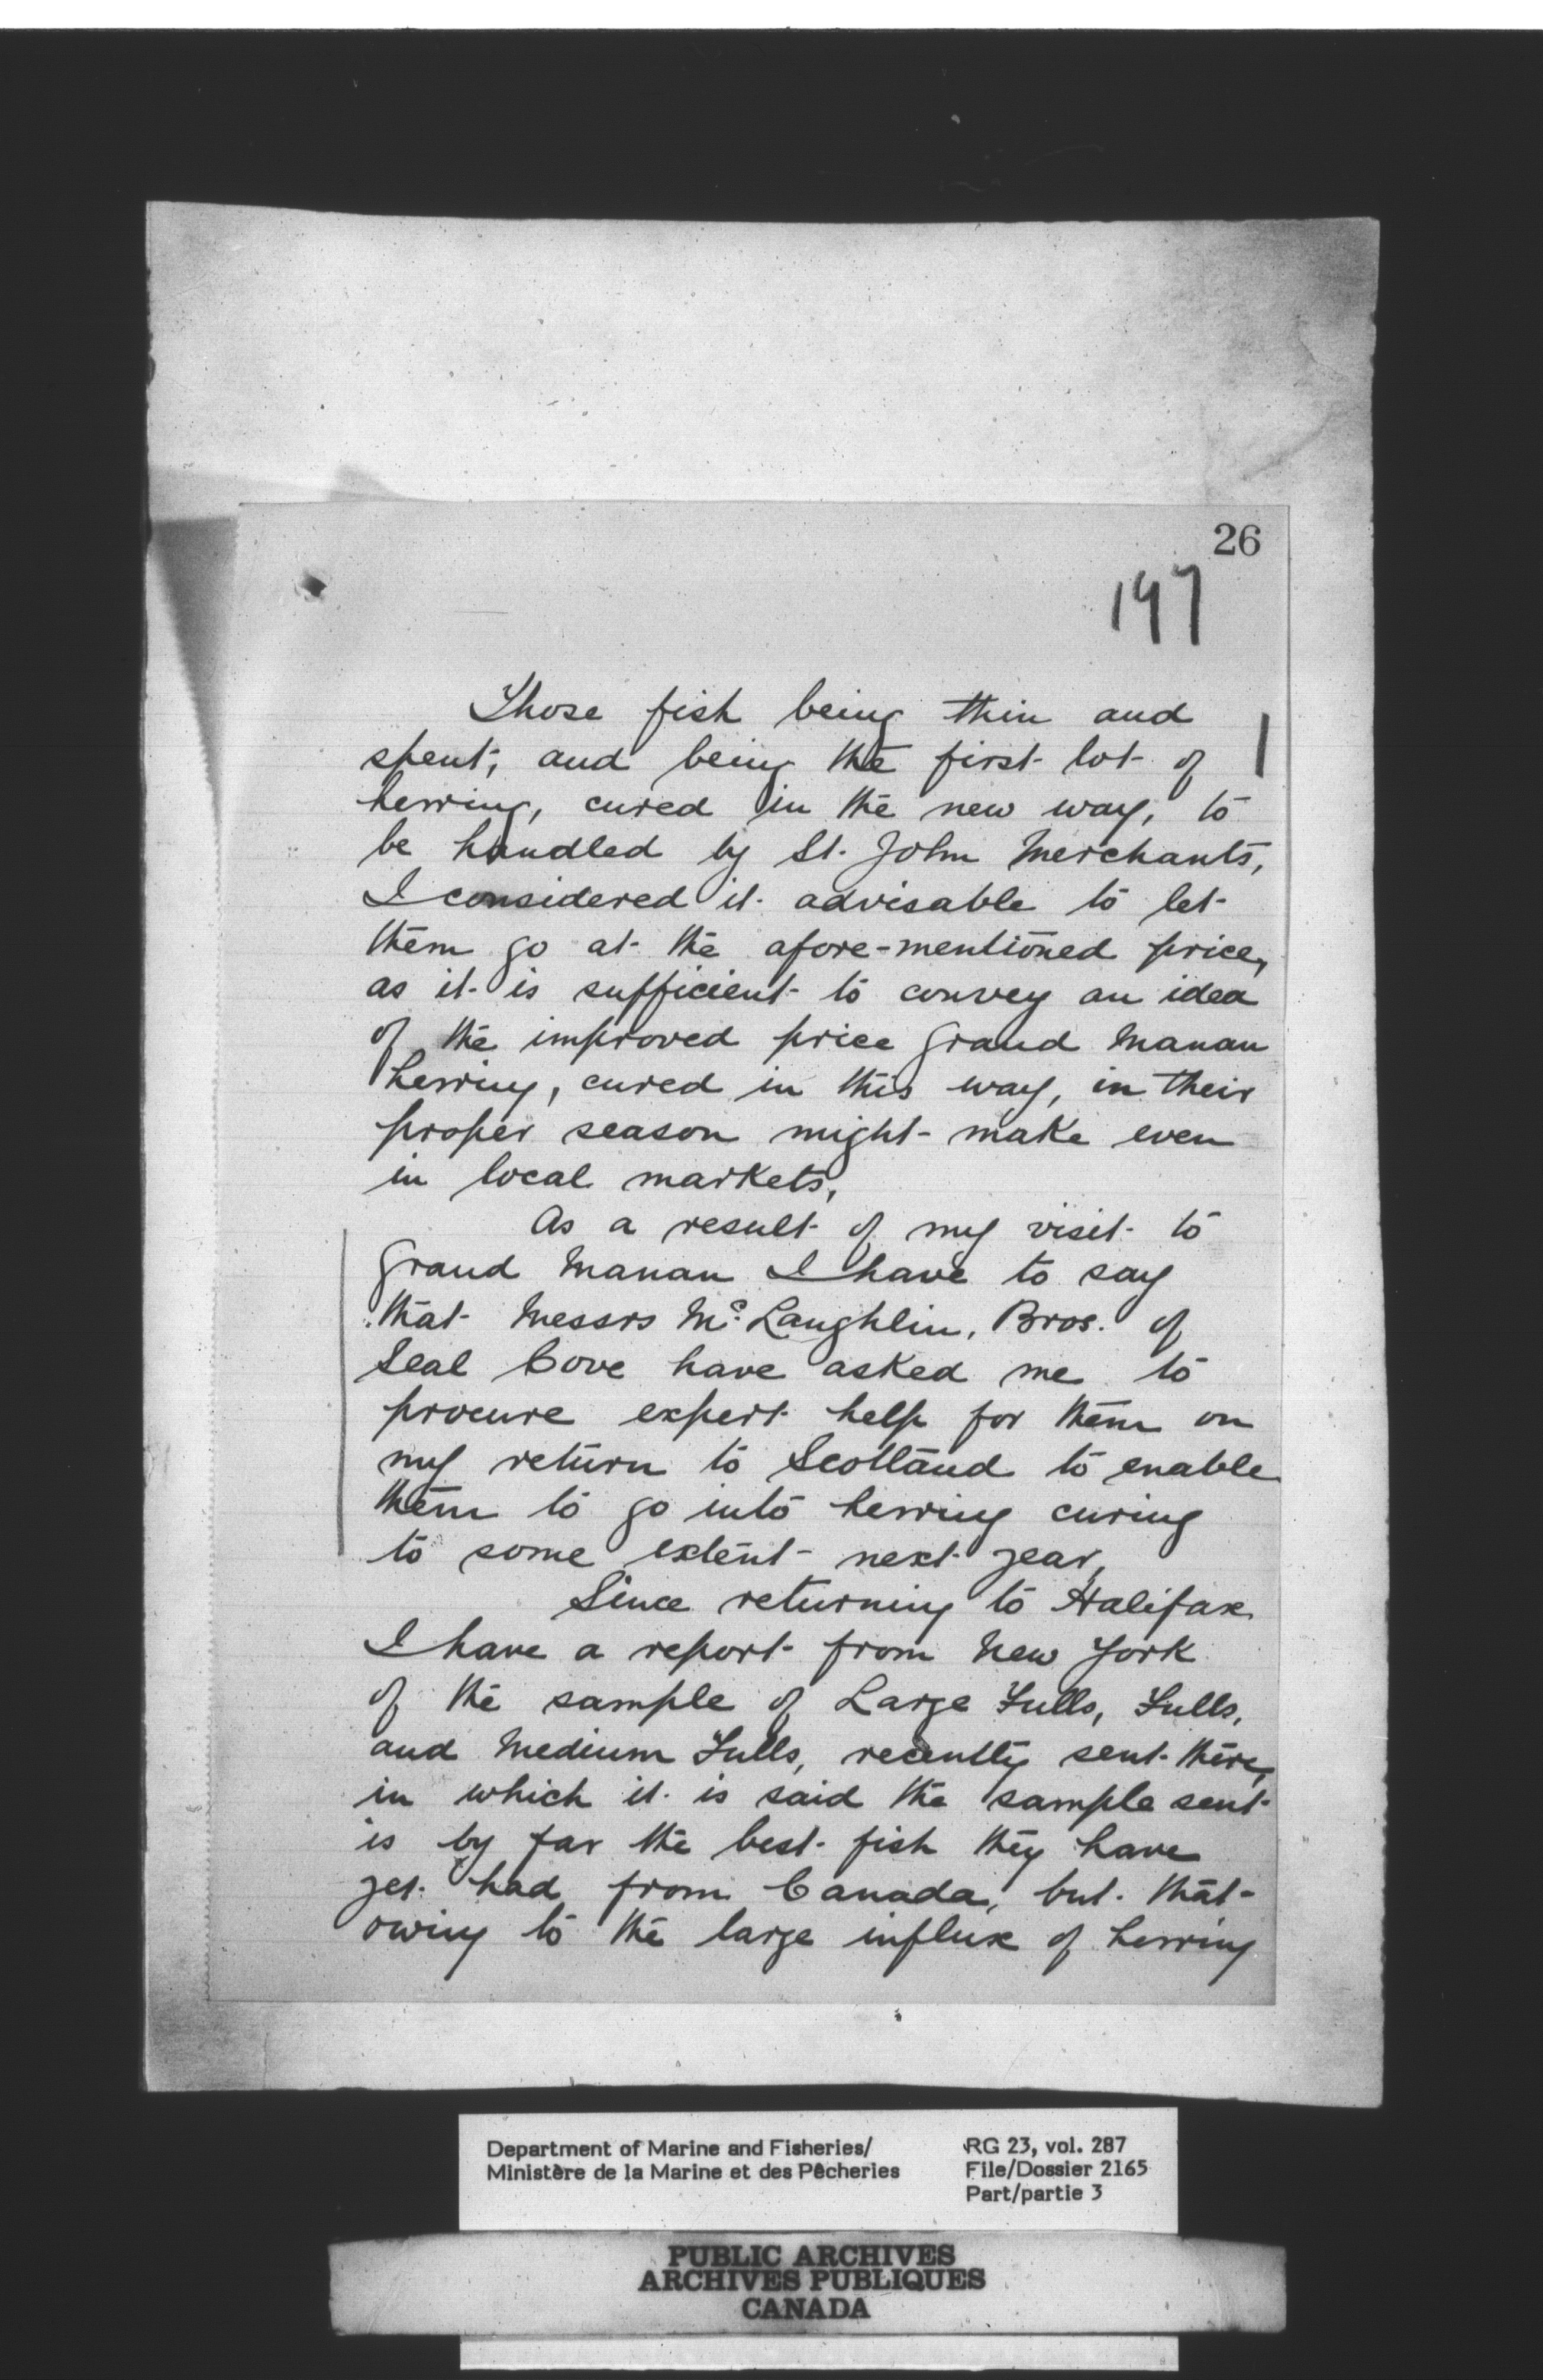 26
197
Those fish being thin and
spent, and being the first lot of
herring, cured in the new way, to
be handled by St. John Merchants,
I considered it advisable to let
them go at the afore-mentioned price,
as it is sufficient to convey an idea
of the improved price Grand Manan
herring, cured in this way, in their
proper season might make even
in local markets.
As a result of my visit to
Grand Manan I have to say
that Messrs McLaughlin, Bros. of
Seal Cove have asked me to
procure expert help for them on
my return to Scotland to enable
them to go into herring curing
to some extent next year.
Since returning to Halifax
I have a report from New York
of the sample of Large Fulls, Fulls,
and Medium Fulls, recently sent there,
in which it is said the sample sent
is by far the best fish they have
yet had from Canada, but that
owing to the large influx of herring
Department of Marine and Fisheries/
Ministère de la Marine et des Pêcheries
RG 23, vol. 287
File/Dossier 2165
Part/partie 3
PUBLIC ARCHIVES
ARCHIVES PUBLIQUES
CANADA